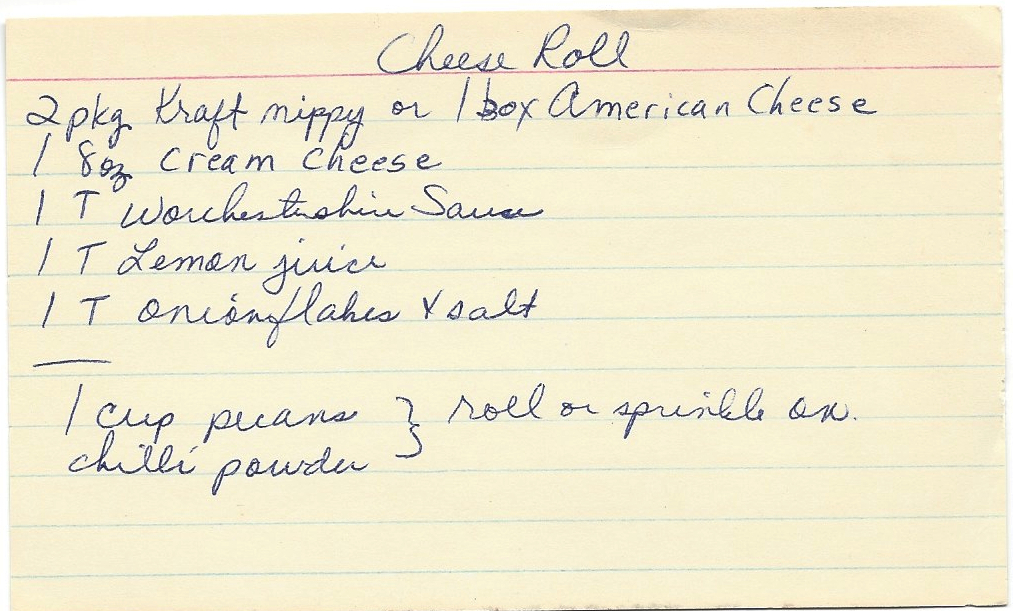 Cheese Roll
2 pkg Kraft nippy or 1 box American Cheese
1 8oz cream cheese
1 T Worchestershire Sauce
1 T Lemon juice
1 T onion flakes & salt
1 cup pecans } roll or sprinkle on.
chilli powder